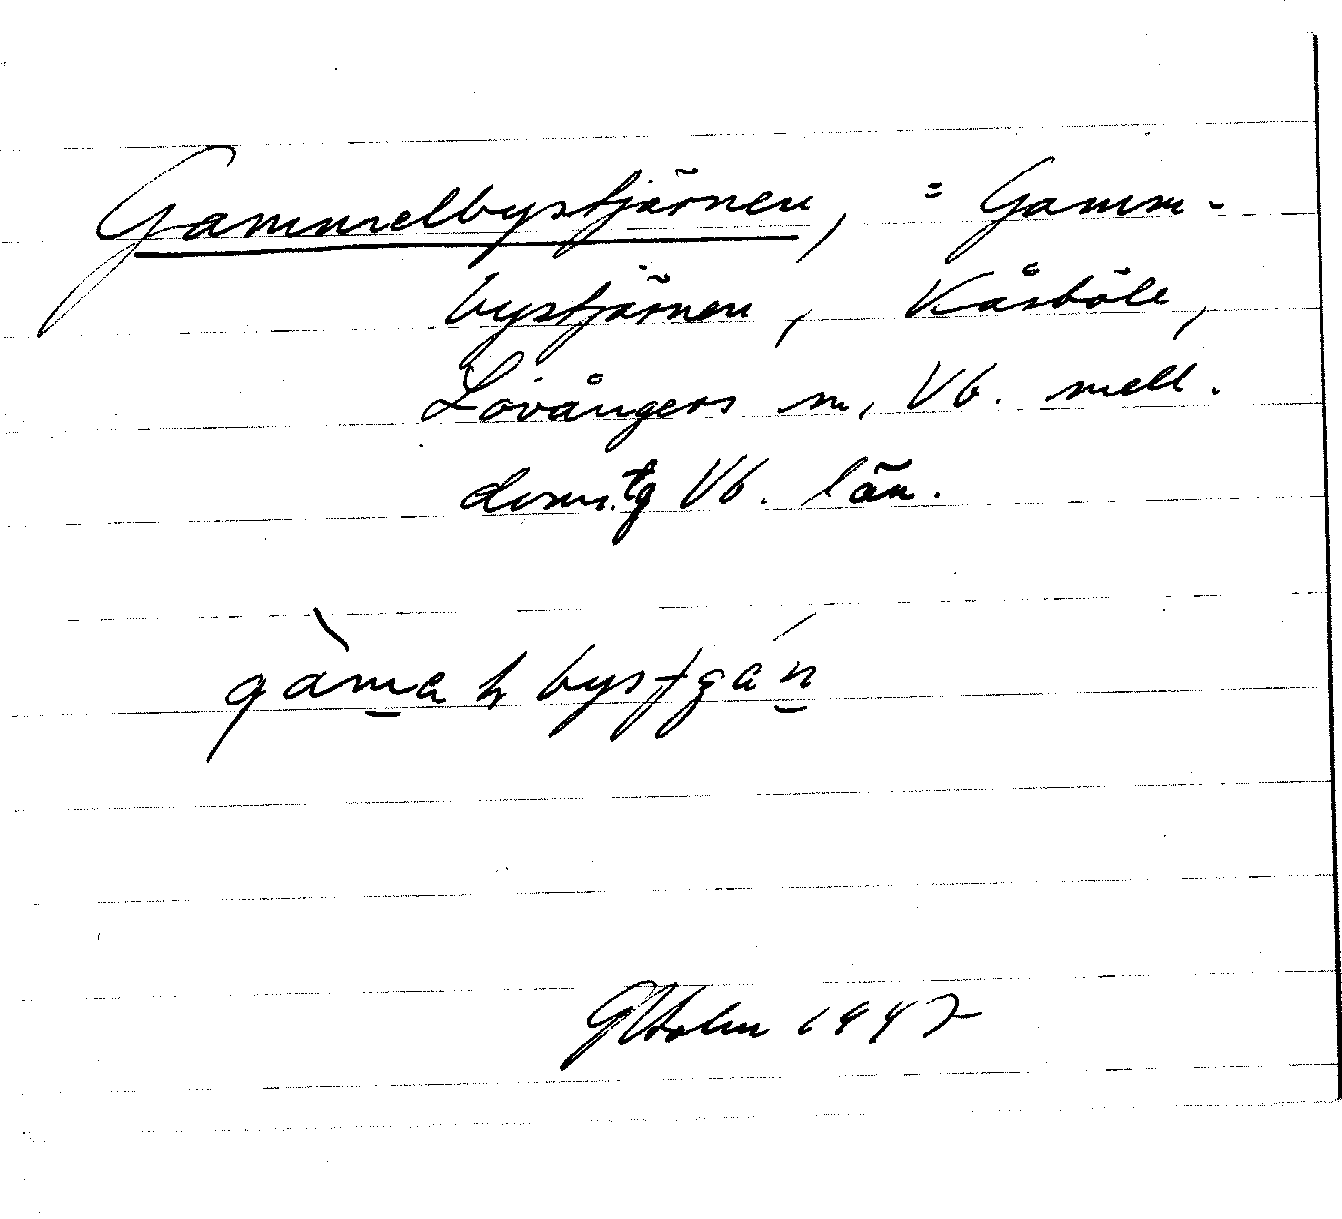 Gammelbystjärnen, = Gamm-
bystjärnen, Kåsböle,
Lövångers sn, Vb. mell.
doms.tg Vb. län.
G Holm 1947